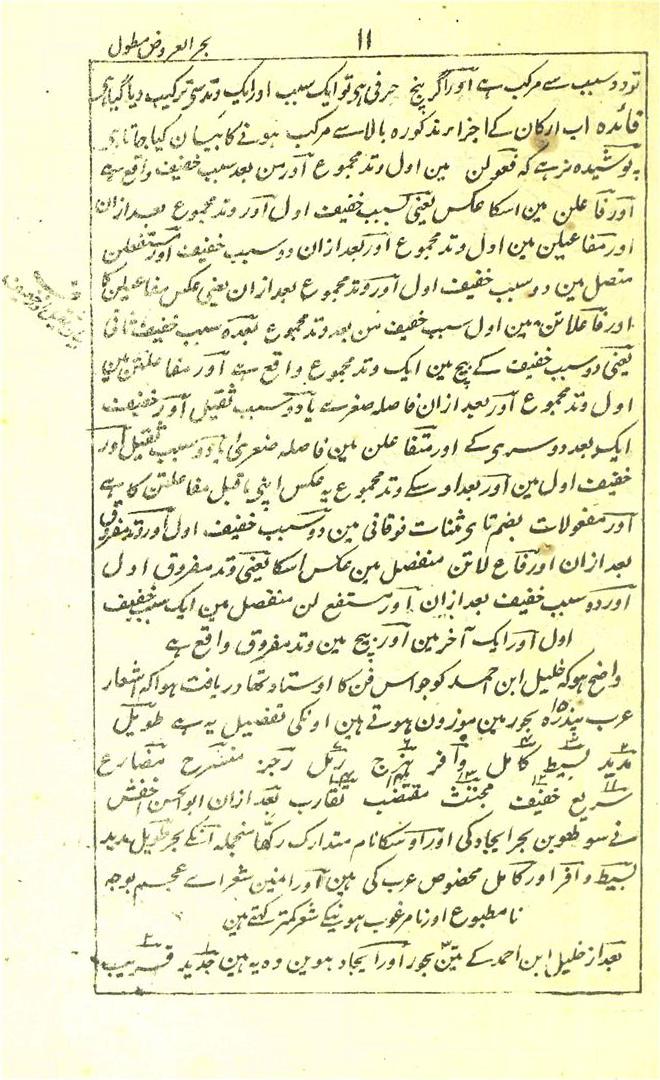 ۱۱
بحر العروض مطول
تو دو سبب سے مرکب ہے اور اگر پنج حرفی ہی تو ایک سبب اور ایک وتد سی ترکیب دیا گیا ہی
فائدہ اب ارکان کے اجزاء مذکورہ بالا سے مرکب ہونے کا بیان کیا جاتا ہی
پوشیدہ نرہے کہ فعولن مین اول وتد مجموع اور من بعد سبب خفیف واقع ہے
اور فاعلن مین اسکا عکس یعنی سبب خفیف اول اور وتد مجموع بعد ازان
اور مفاعیلن مین اول وتد مجموع اور بعد ازان دو سبب خفیف اور مستفعلن
متصل مین دو سبب خفیف اول اور وتد مجموع بعد ازان یعنی عکس مفاعیلن کا
اور فاعلاتن مین اول سبب خفیف من بعد وتد مجموع بعدہ سبب خفیف ثانی
یعنی دو سبب خفیف کے بیچ مین ایک وتد مجموع واقع ہے اور مفاعلتن مین
اول وتد مجموع اور بعد ازان فاصلہ صغرے یا دو سبب ثقیل اور خفیف
ایک بعد دوسری کے اور متفاعلن مین فاصلہ صغری یا دو سبب ثقیل اور
خفیف اول مین اور بعد اوسکے وتد مجموع یہ عکس اپنی ماقبل مفاعلتن کا ہے
اور مفعولات بضم تای مثنات فوقانی مین دو سبب خفیف اول اور وتد مفروق
بعد ازان اور فاع لاتن منفصل مین عکس اسکا یعنی وتد مفروق اول
اور دو سبب خفیف بعد ازان اور مستفع لن منفصل مین ایک سبب خفیف
اول اور ایک آخر مین اور بیچ مین وتد مفروق واقع ہے
واضح ہو کہ خلیل ابن احمد کو جو اس فن کا اوستاد تھا دریافت ہوا کہ اشعار
عرب پندرہ ۱۵ بحور مین موزون ہوتے ہین اونکی تفصیل یہ ہے طویل
مدید بسیط کامل وافر ہزج رمل رجز منسرح مضارع
سریع خفیف مجتث مقتضب تقارب بعد ازان ابو الحسن اخفش
نے سولھوین بحر ایجاد کی اور اوسکا نام متدارک رکھا منجملہ انکے بحر طویل مدید
بسیط وافر اور کامل مخصوص عرب کی ہین اور انمین شعراے عجم بوجہ
نامطبوع اور نامرغوب ہونیکے شعر کمتر کہتے ہین
بعد از خلیل ابن احمد کے تین بحور اور ایجاد ہوین وہ یہ ہین جدید قریب